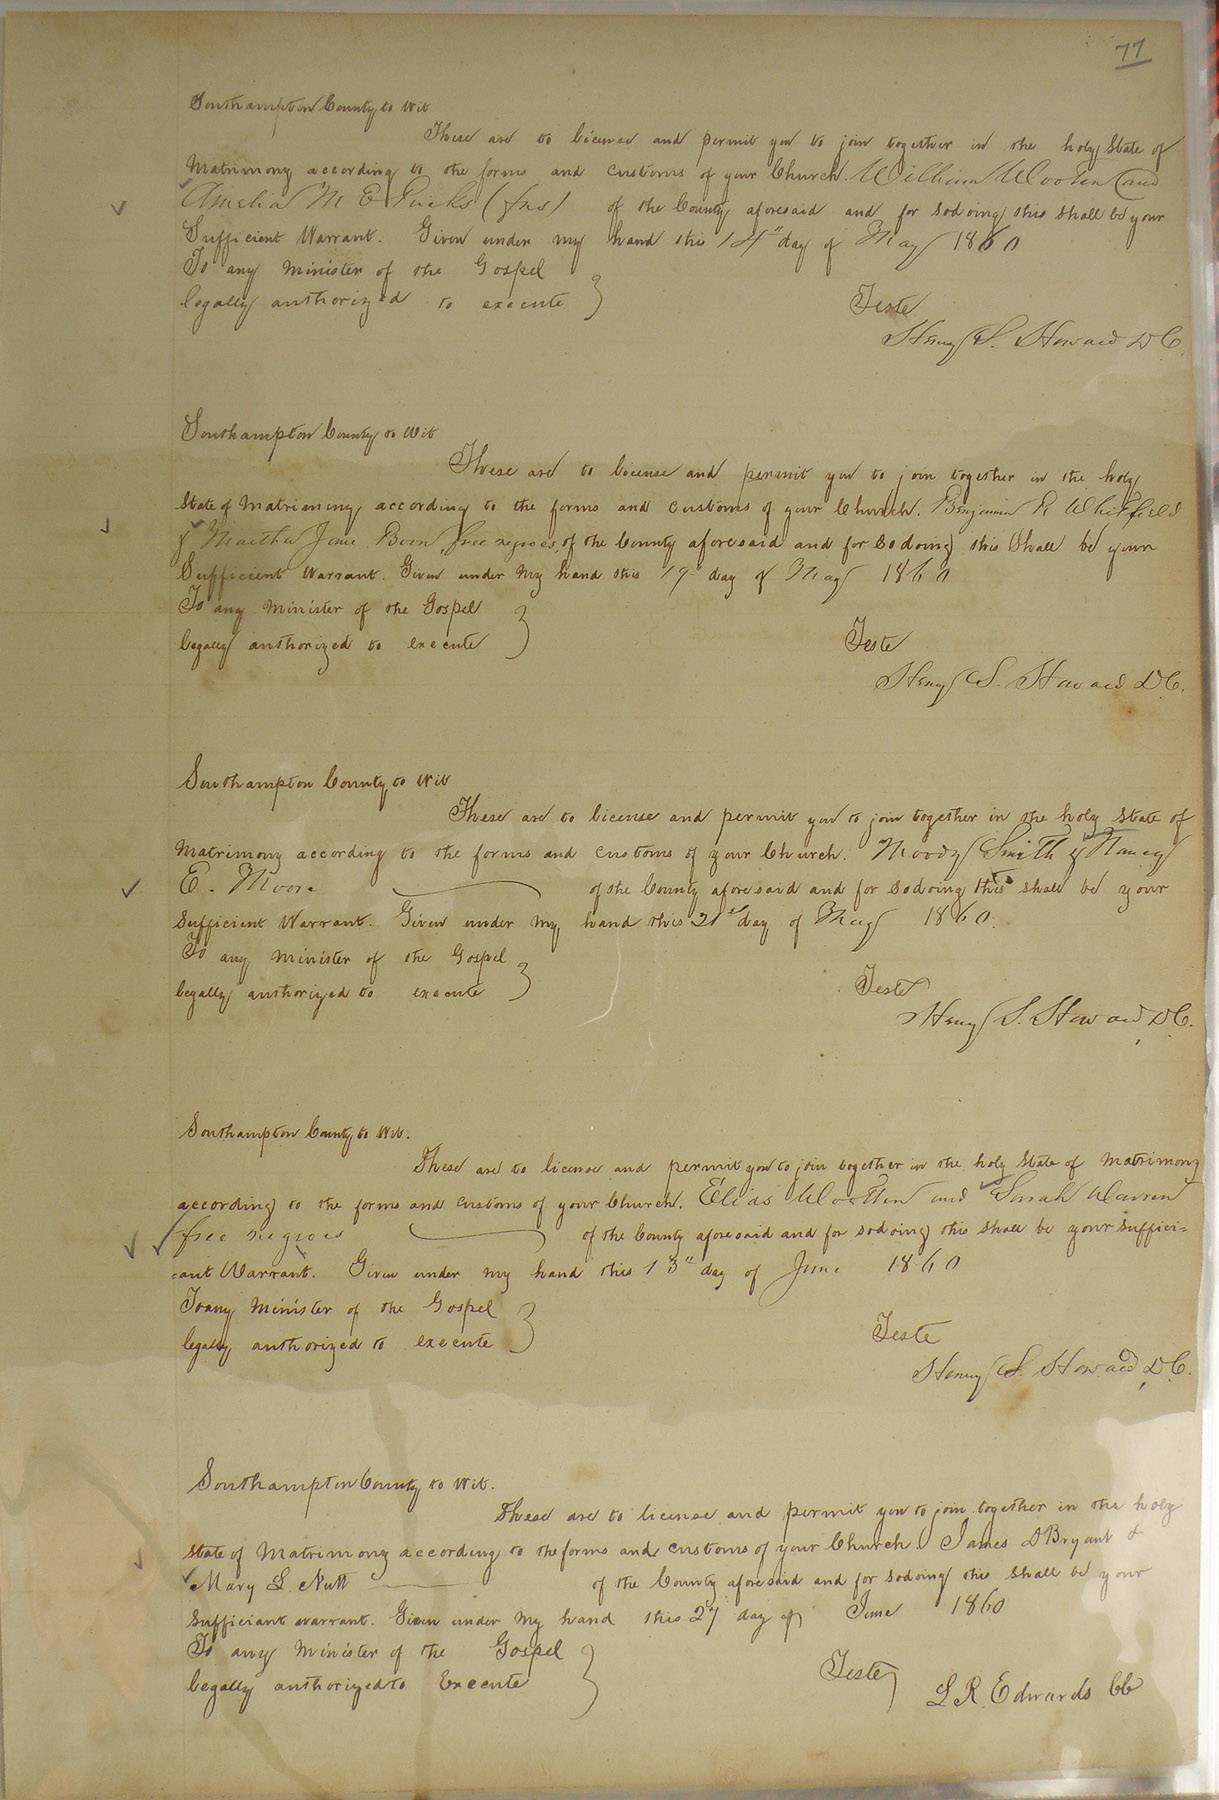 77
Southampton County to Wit
These are to license and permit you to join together in the holy State of
Matrimony according to the forms and customs of your Church. William Wooten (and
Amelia M E Ricks (fns) of the County aforesaid and for so doing this shall be your
Sufficient Warrant. Given under my hand this 14" day of May 1860
To any Minister of the Gospel
legally authorized to execute }
Teste
Henry S. Howard D C.
Southampton County to Wit
These are to license and permit you to join together in the holy
State of Matrimony, according to the forms and customs of your Church. Benjamin R Whitfield
& Martha Jane Boon, free negroes, of the County aforesaid and for so doing this Shall be your
Sufficient Warrant. Given under my hand this 19 day of May 1860
To any Minister of the Gospel
legally authorized to execute }
Teste
Henry S. Howard D.C.
Southampton County to Wit
These are to license and permit you to join together in the holy State of
Matrimony according to the forms and customs of your Church. Moody Smith & Nancy
E. Moore of the County aforesaid and for so doing this shall be your
sufficient Warrant. Given under my hand this 21st day of May 1860.
To any Minister of the Gospel
legally authorized to execute }
Teste
Henry S. Howard, D.C.
Southampton County to Wit.
These are to license and permit you to join together in the holy State of Matrimony
according to the forms and customs of your Church. Elias Wootten and Sarah Warren
free negroes of the County aforesaid and for so doing this shall be your suffici=
=ant Warrant. Given under my hand this 13" day of June 1860
To any Minister of the Gospel
legally authorized to execute }
Teste
Henry S. Howard, D.C.
Southampton County to Wit.
These are to license and permit you to join together in the holy
state of Matrimony according to the forms and customs of your Church James D Bryant &
Mary L. Nutt of the County aforesaid and for so doing this shall be your
sufficiant warrant. Given under my hand this 27 day of June 1860
To any Minister of the Gospel
legally authorized to Execute }
Teste
L R. Edwards CC